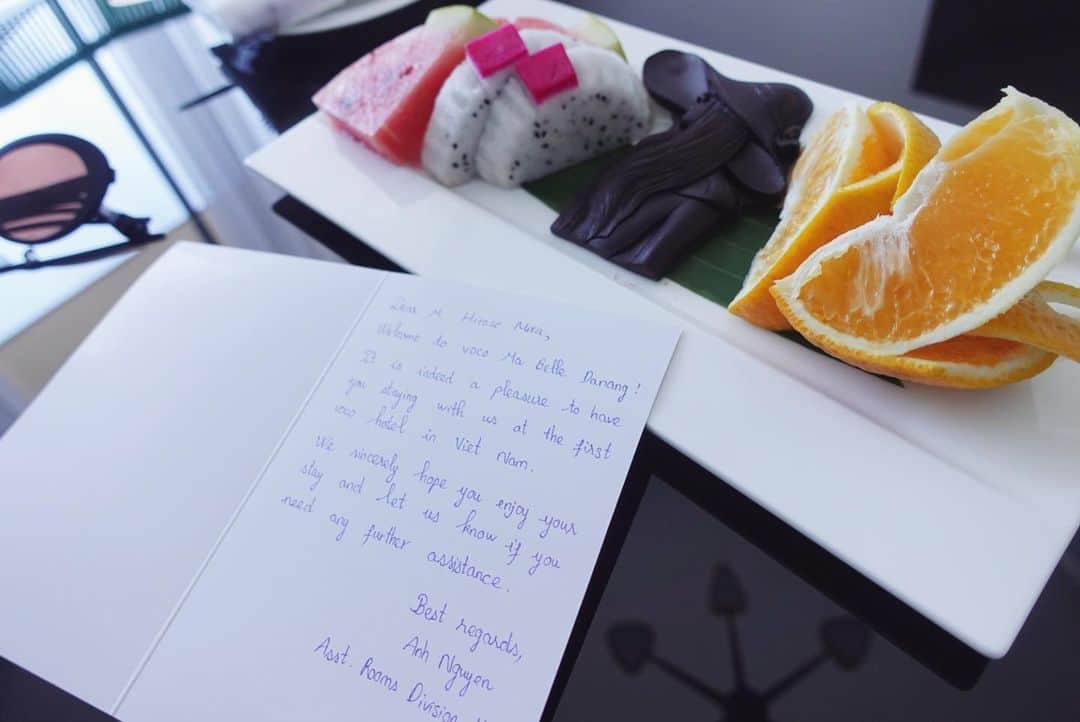 Dear M. Hirose Nura,
Welcome to voco Ma Belle Danang!
It is indeed a pleasure to have
you staying with us at the first
voco hotel in Viet Nam.
We sincerely hope you enjoy your
stay and let us know if you
need any further assistance.
Best regards,
Anh Nguyen
Asst. Rooms Division